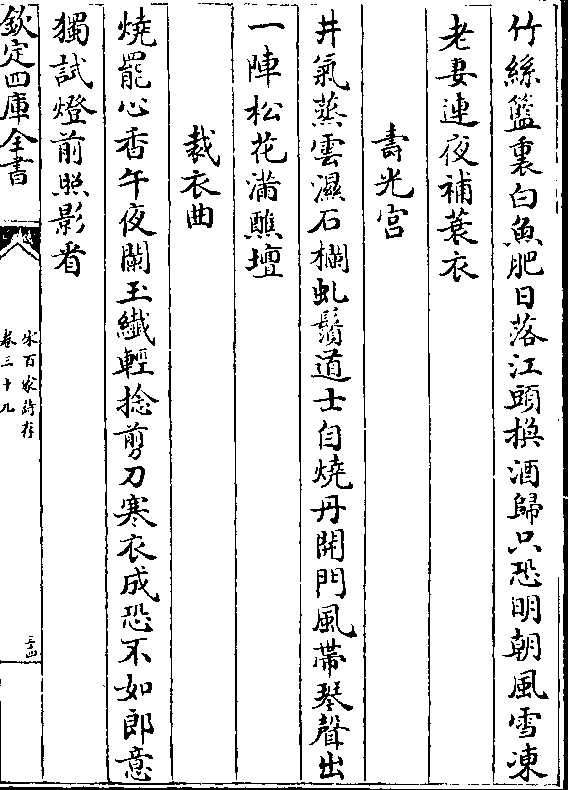 竹絲籃裏白魚肥日落江頭換酒歸只恐明朝風雪凍
老妻連夜補蓑衣
壽光宫
井氣蒸雲濕石欄虬鬚道士自燒丹開門風帶琴聲出
一陣松花滿醮壇
裁衣曲
燒罷心香午夜闌玉纖輕捻剪刀寒衣成恐不如郎意
獨試燈前照影看
欽定四庫全書
宋百家詩存
卷三十九
三四